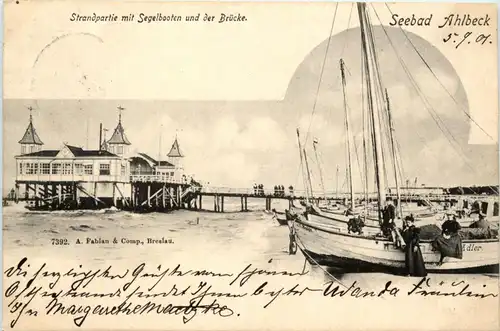 Strandpartie mit Segelbooten und der Brücke.
Seebad Ahlbeck
5.9.01.
7392. A. Fabian & Comp., Breslau.
Adler
Die herzlichsten Grüße vom schönen
Ostseestrande sendet Ihnen
Wanda Fräulein
Margarethe